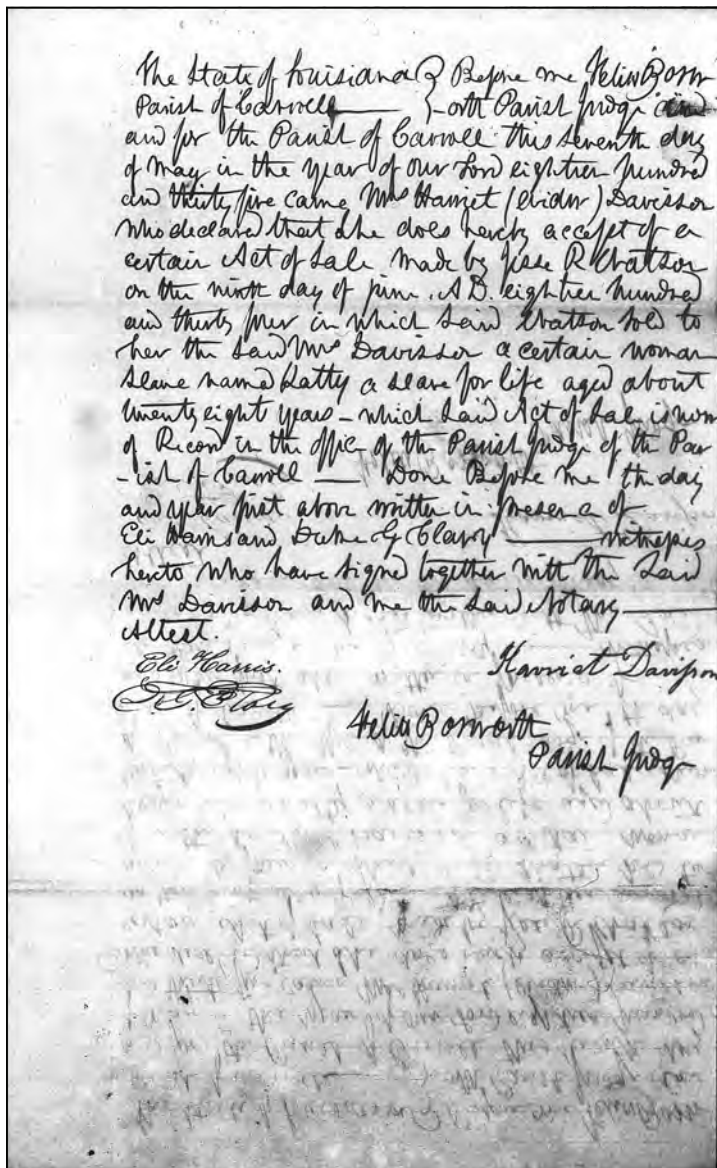 The State of Louisiana } Before me Felix Bosw
Parish of Carroll —— } -orth Parish Judge in
and for the Parish of Carroll this seventh day
of May in the year of our Lord eighteen hundred
and thirty five came Mrs Harriet (widow) Davisson
who declared that she does hereby accept of a
certain Act of Sale made by Jesse R Watson
on the ninth day of June. A.D. eighteen hundred
and thirty four in which said Watson sold to
her the said Mrs Davisson a certain woman
slave named Katty a slave for life aged about
twenty eight years – which said Act of Sale is now
of Record in the office of the Parish Judge of the Par
-ish of Carroll —— Done Before me the day
and year first above written in presence of
Eli Harris and Duke G —— witnesses
hereto who have signed together with the said
Mrs Davisson and me the said Notary ——
Attest.
Eli Harris.
Harriet Davisson
Felix Bosworth
Parish Judge